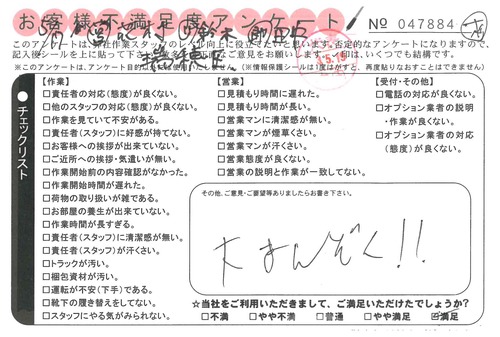 お客様ご満足度アンケート!
No 047884
このアンケートは、弊社作業スタッフのレベル向上に役立てたいと思います。否定的なアンケートになりますので、
※このアンケートは、アンケート目的以外には使用いたしません。(※情報保護シールは1度はがすと、再度貼りなおすことはできません)
チェックリスト
【作業】
□責任者の対応(態度)が良くない。
□他のスタッフの対応(態度)が良くない。
□作業を見ていて不安がある。
□責任者(スタッフ)に好感が持てない。
□お客様への挨拶が出来ていない。
□ご近所への挨拶・気遣いが無い。
□作業開始前の内容確認がなかった。
□作業開始時間が遅れた。
□荷物の取り扱いが雑である。
□お部屋の養生が出来ていない。
□作業時間が長すぎる。
□責任者(スタッフ)に清潔感が無い。
□責任者(スタッフ)が汗くさい。
□トラックが汚い。
□梱包資材が汚い。
□運転が不安(下手)である。
□靴下の履き替えをしてない。
□スタッフにやる気がみられない。
【営業】
□見積もり時間に遅れた。
□見積もり時間が長い。
□営業マンに清潔感が無い。
□営業マンが煙草くさい。
□営業マンが汗くさい。
□営業態度が良くない。
□営業の説明と作業が一致してない。
【受付・その他】
□電話の対応が良くない。
□オプション業者の説明
・作業が良くない。
□オプション業者の対応
(態度)が良くない。
その他、ご意見・ご要望等ありましたらお書き下さい。
大まんぞく!!
☆当社をご利用いただきまして、ご満足いただけたでしょうか?
□不満 □やや不満 □普通 □やや満足 ☑満足